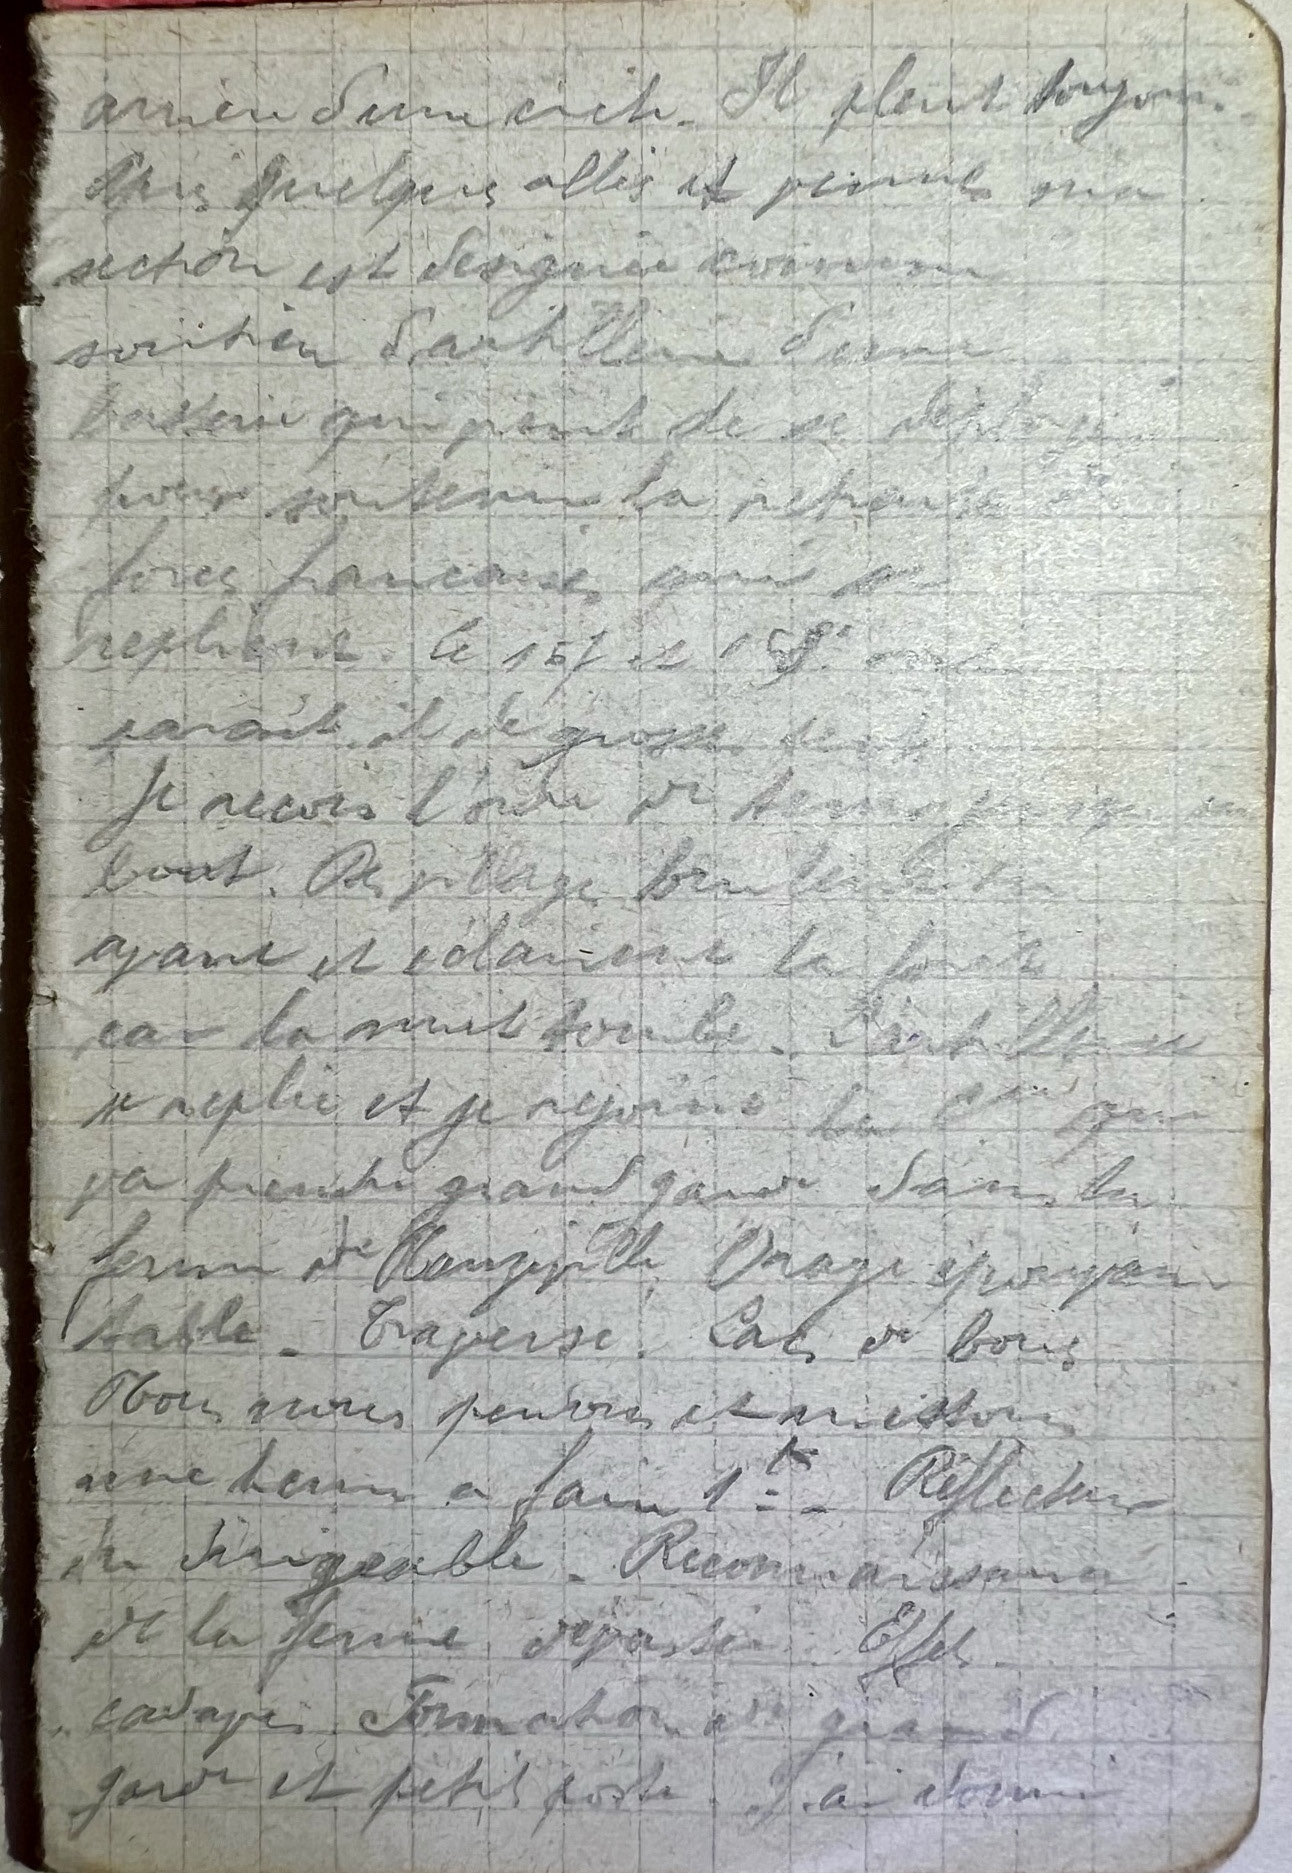 arrière d'une crête. Il pleut toujours.
Après quelques allées et venues ma
section est désignée comme
soutien d'artillerie d'une
batterie qui vient de se déployer
pour soutenir la retraite de
forces françaises qui se
replient. Le 157 et 158e ont
parait-il de grosses pertes
Je reçois l'ordre de tenir jusqu'au
bout. Des villages brûlent en
avant et éclairent la forêt
car la nuit tombe. L'artillerie
se replie et je rejoins la Cie qui
va prendre grand garde dans la
ferme de Mauzeville Orage épouvan
table. Traverse. Lacs de boue
Nous nous perdons et mettons
une heure a faire 1 K. Réflecteur
du dirigeable. Reconnaissance
de la ferme dévastée. Effets
cadavres. Formation de grand
garde et petit poste. J'ai dormi